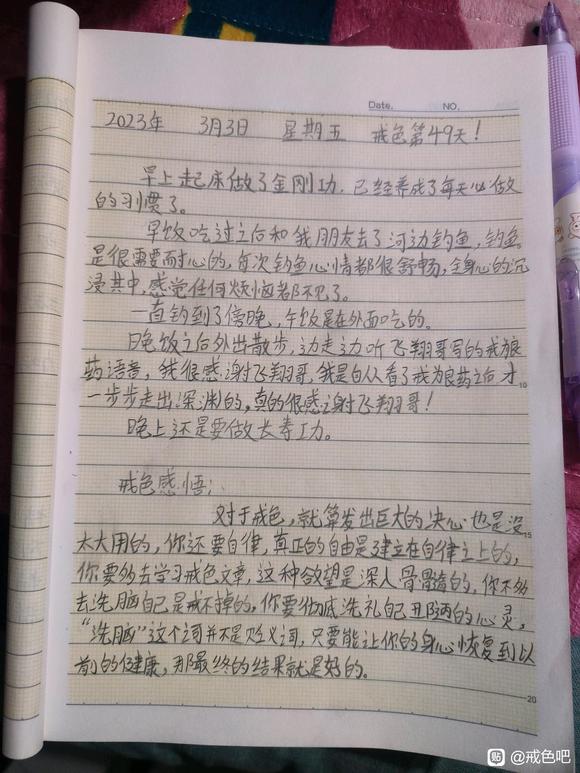 Date. NO.
2023年 3月3日 星期五 戒色第49天!
早上起床做了金刚功,已经养成了每天必做
的习惯了。
早饭吃过之后和我朋友去了河边钓鱼,钓鱼
是很需要耐心的,每次钓鱼心情都很舒畅,全身心的沉
浸其中,感觉任何烦恼都不见了。
一直钓到了傍晚,午饭是在外面吃的。
晚饭之后外出散步,边走边听飞翔哥写的戒为良
药语音,我很感谢飞翔哥,我是自从看了戒为良药之后才
10
一步步走出深渊的,真的很感谢飞翔哥!
晚上还是要做长寿功。
戒色感悟:
对于戒色,就算发出巨大的决心也是没
15
太大用的,你还要自律,真正的自由是建立在自律之上的,
你要多去学习戒色文章,这种欲望是深入骨髓的,你不多
去洗脑自己是戒不掉的,你要彻底洗礼自己丑陋的心灵,
“洗脑”这个词并不是贬义词,只要能让你的身心恢复到以
前的健康,那最终的结果就是好的。
20
贴 @戒色吧